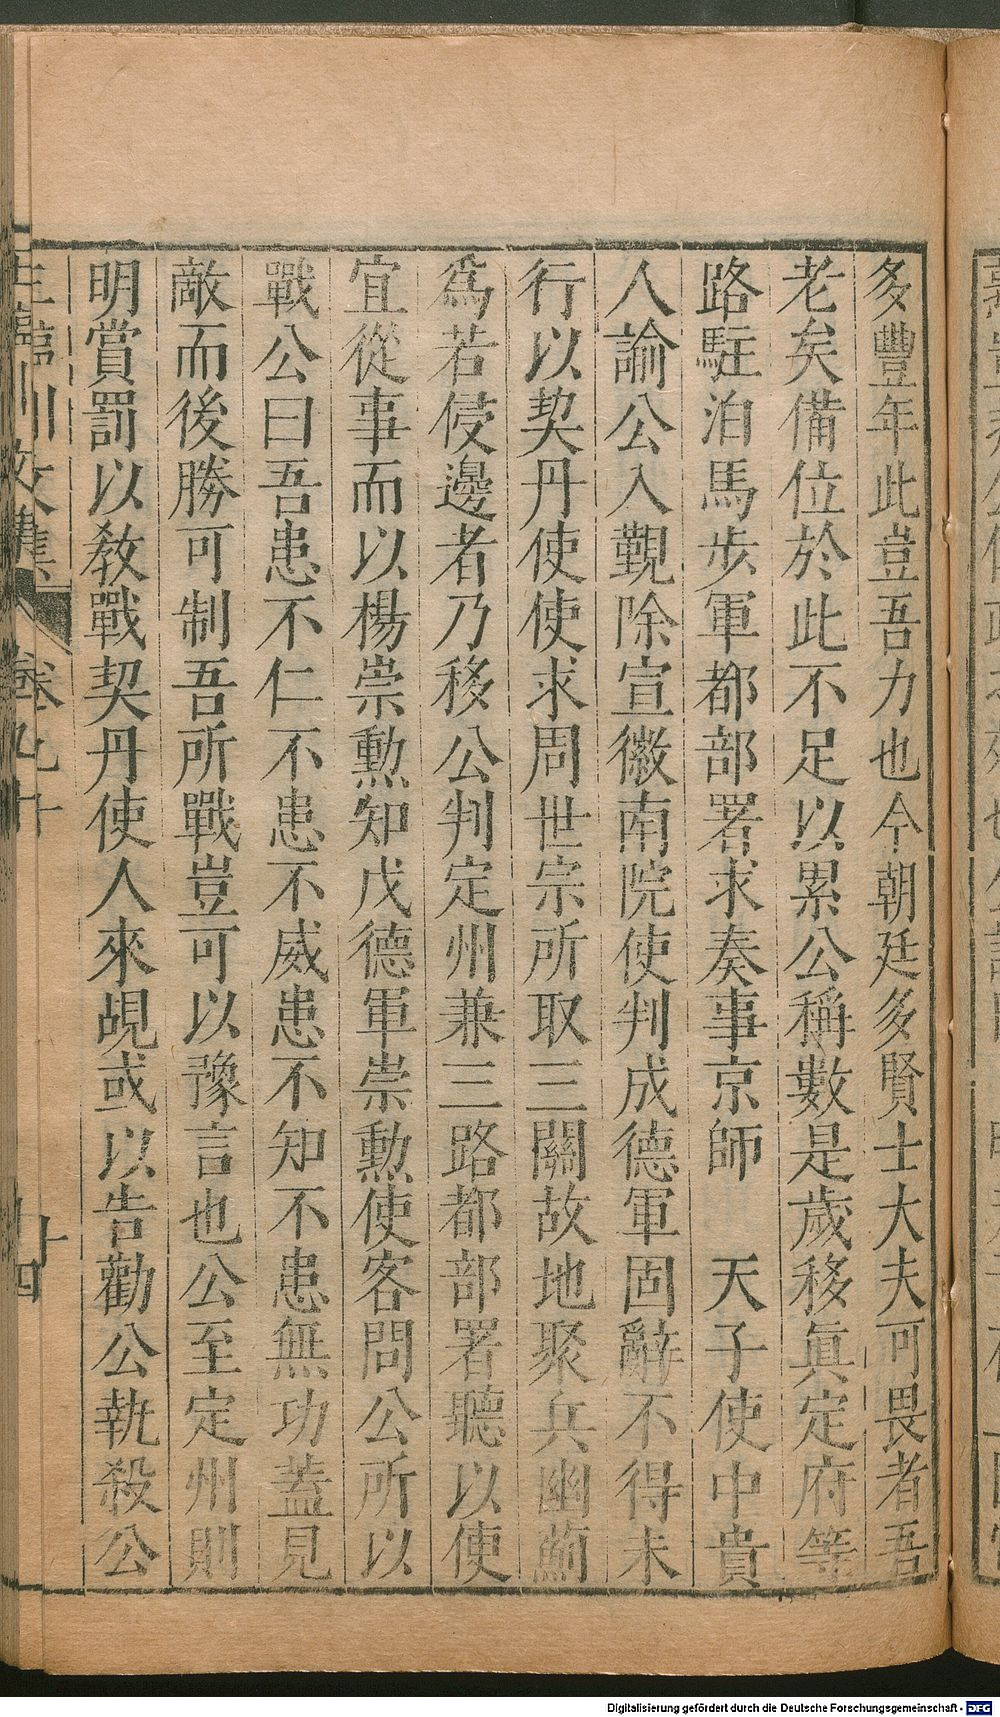 多豐年此豈吾力也今朝廷多賢士大夫可畏者吾
老矣備位於此不足以累公稱數是歲移眞定府等
路駐泊馬步軍都部署求奏事京師　天子使中貴
人諭公入覲除宣徽南院使判成德軍固辭不得未
行以契丹使使求周世宗所取三關故地聚兵幽薊
爲若侵邊者乃移公判定州兼三路都部署聽以使
宜從事而以楊崇勳知戊德軍崇勳使客問公所以
戰公曰吾患不仁不患不威患不知不患無功蓋見
敵而後勝可制吾所戰豈可以豫言也公至定州則
明賞罰以敎戰契丹使人來覘或以告勸公執殺公
臨川文集
卷九十
十四
Digitalisierung gefördert durch die Deutsche Forschungsgemeinschaft - DFG